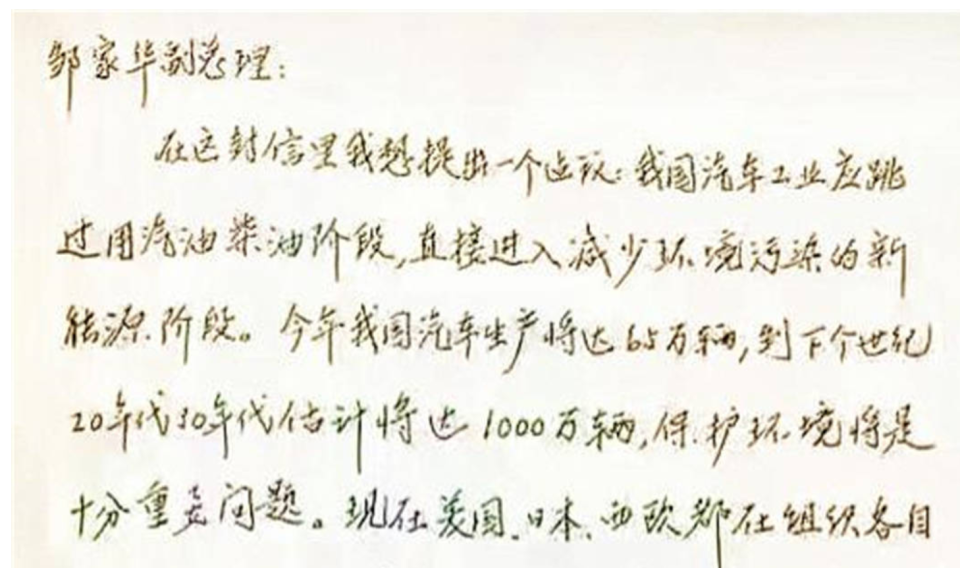 邹家华副总理：
在这封信里我想提出一个建议：我国汽车工业应跳
过用汽油柴油阶段，直接进入减少环境污染的新
能源阶段。今年我国汽车生产将达65万辆，到下个世纪
20年代30年代估计将达1000万辆，保护环境将是
十分重要问题。现在美国、日本、西欧都在组织各自